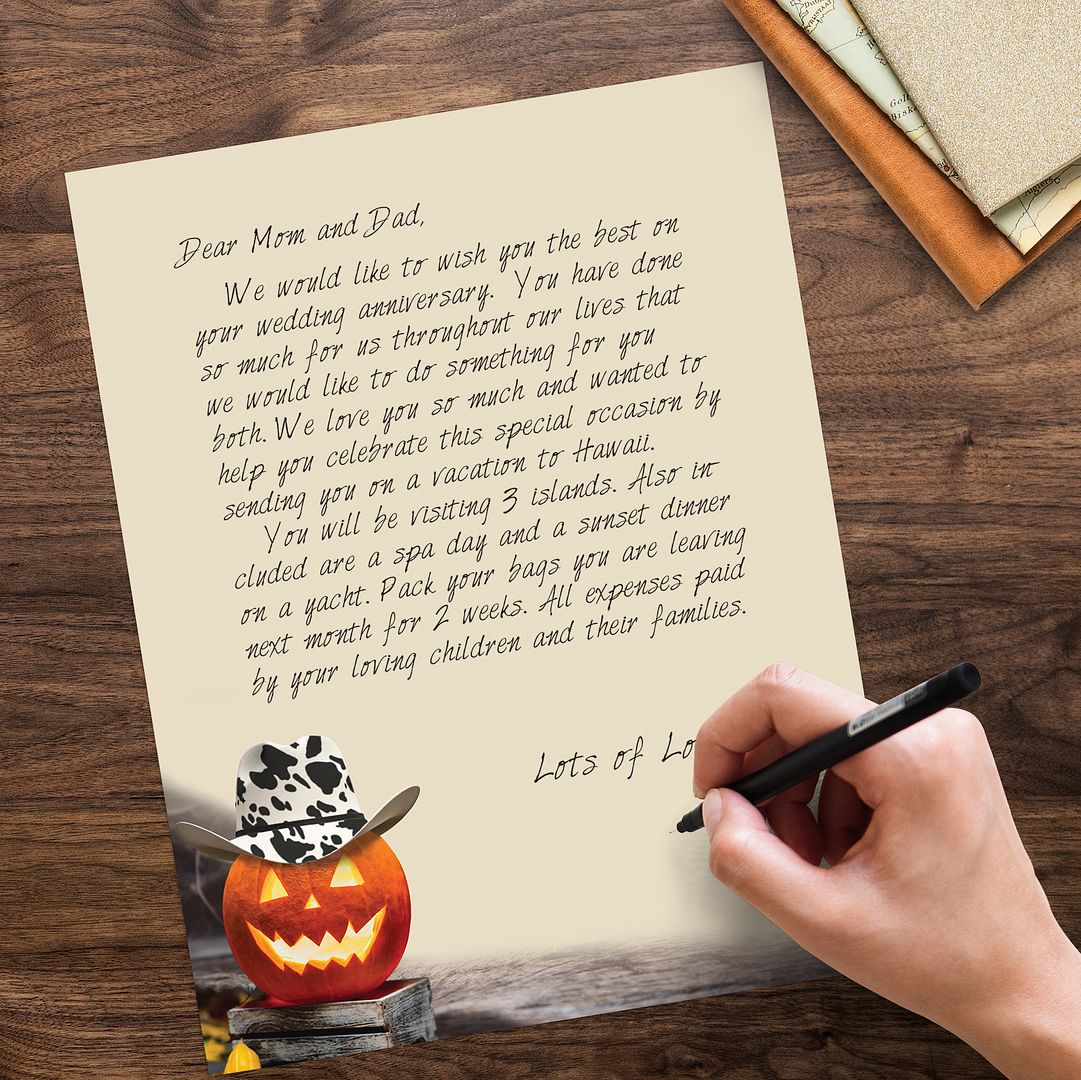 Dear Mom and Dad,
We would like to wish you the best on
your wedding anniversary. You have done
so much for us throughout our lives that
we would like to do something for you
both. We love you so much and wanted to
help you celebrate this special occasion by
sending you on a vacation to Hawaii.
You will be visiting 3 islands. Also in
cluded are a spa day and a sunset dinner
on a yacht. Pack your bags you are leaving
next month for 2 weeks. All expenses paid
by your loving children and their families.
Lots of Lo